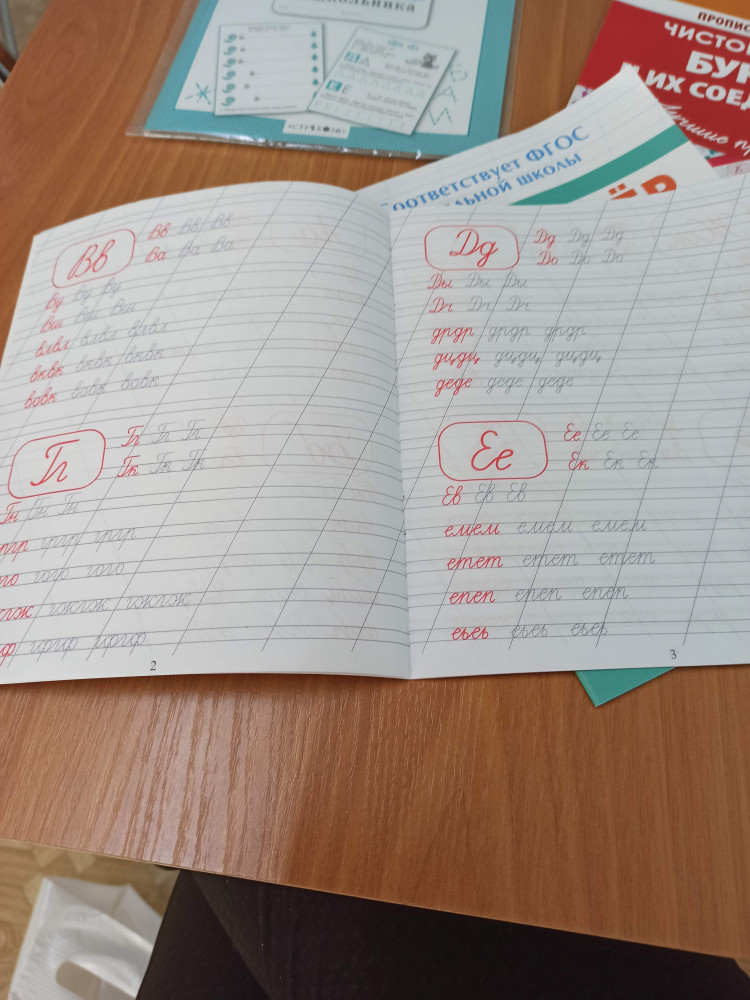 школьника
«СТРЕКОЗА»
ПРОПИС
ЧИСТО
БУ
И ИХ СОЕД
Лучшие пр
СООТВЕТСТВУЕТ ФГОС
ЛЬНОЙ ШКОЛЫ
Вв
Вв Вв Вв
Ва Ва Ва
Ву Ву Ву
Вш Вш Вш
влвл влвл влвл
вквк вквк вквк
вовк вовк вовк
Гг
Гг Гг Гг
Гк Гк Гк
Гн Гн Гн
ргр гргр гргр
го гого гого
гжгж гжгж
ф
2
Дд
Дд Дд Дд
До До До
Ды Ды Ды
Дч Дч Дч
дрдр дрдр дрдр
дцдц дцдц дцдц
деде деде деде
Ее
Ее Ее Ее
Ек Ек Ек
Ев Ев Ев
емем емем емем
етет етет етет
епеп епеп епеп
еьеь еьеь еьеь
3